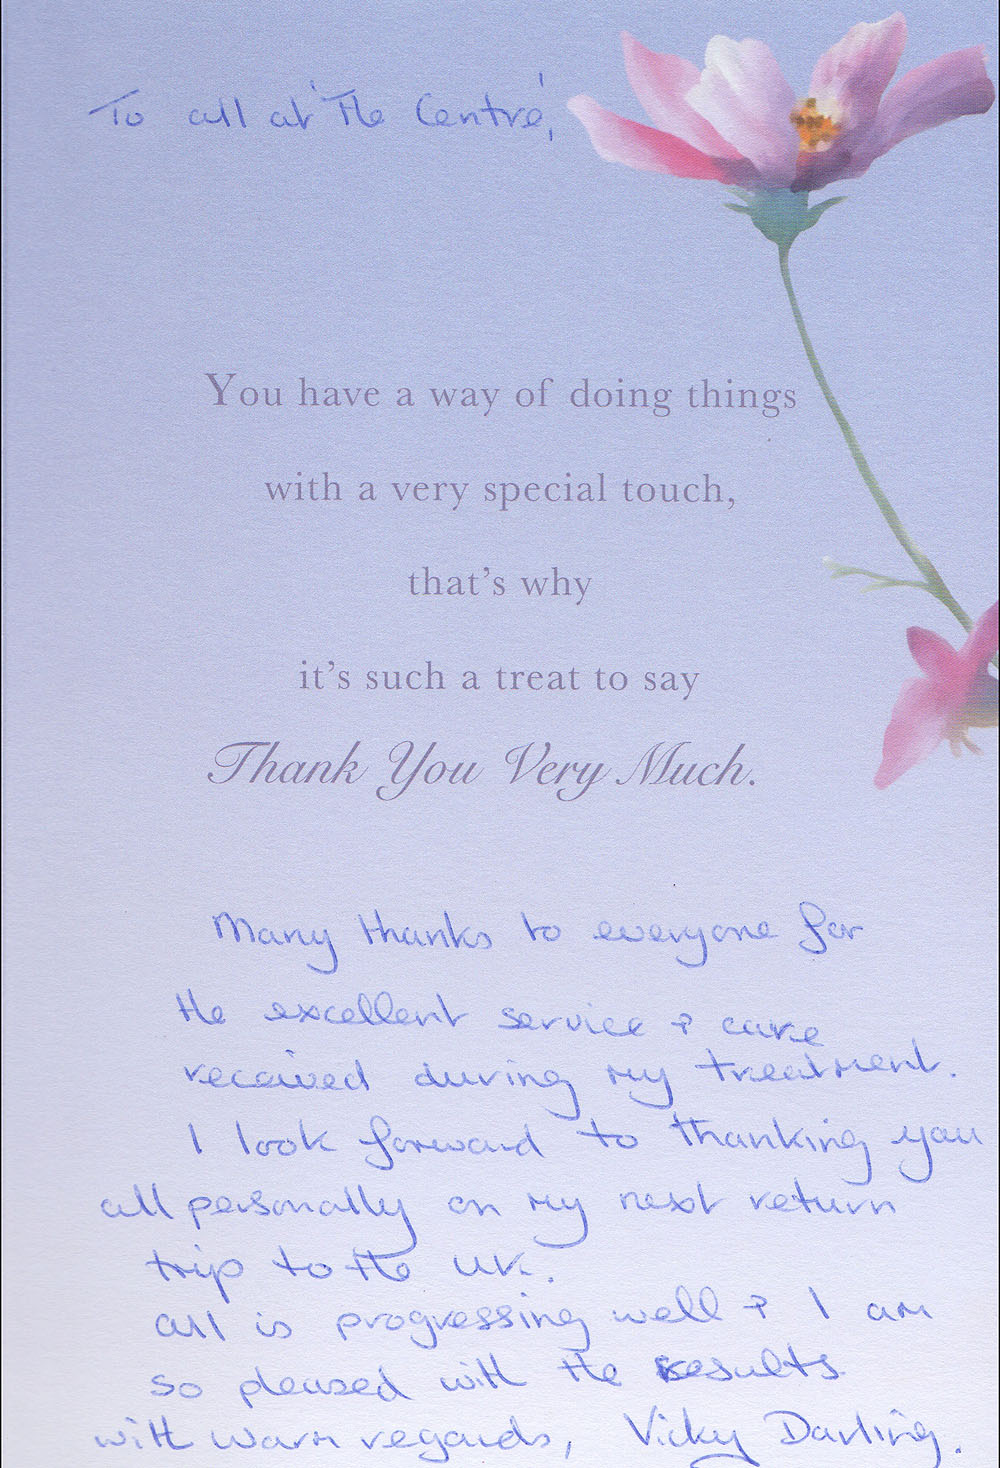 To all at 'The Centre',
You have a way of doing things
with a very special touch,
that's why
it's such a treat to say
Thank You Very Much.
Many thanks to everyone for
the excellent service & care
received during my treatment.
I look forward to thanking you
all personally on my next return
trip to the UK.
All is progressing well & I am
so pleased with the results
with warm regards, Vicky Darling.